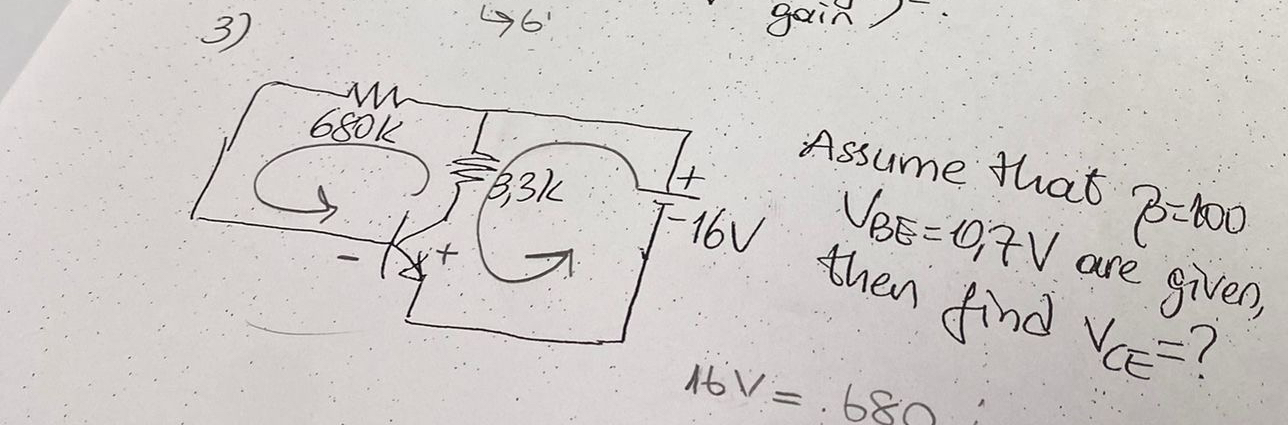 ↳6'
gain) .
3)
680k
3,3k
+
- 16V
- +
Assume that β=100
VBE=0,7V are given,
then find VCE=?
16V = .680